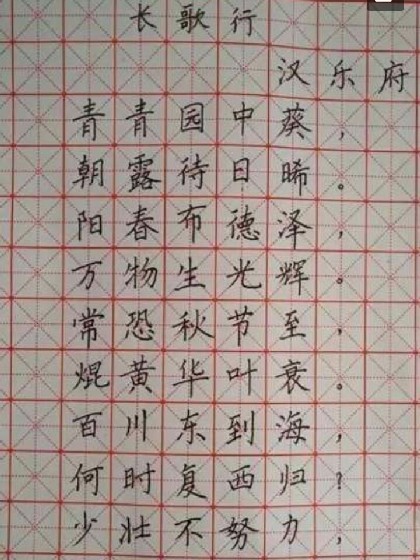 长歌行
汉乐府
青青园中葵，
朝露待日晞。
阳春布德泽，
万物生光辉。
常恐秋节至，
焜黄华叶衰。
百川东到海，
何时复西归？
少壮不努力，